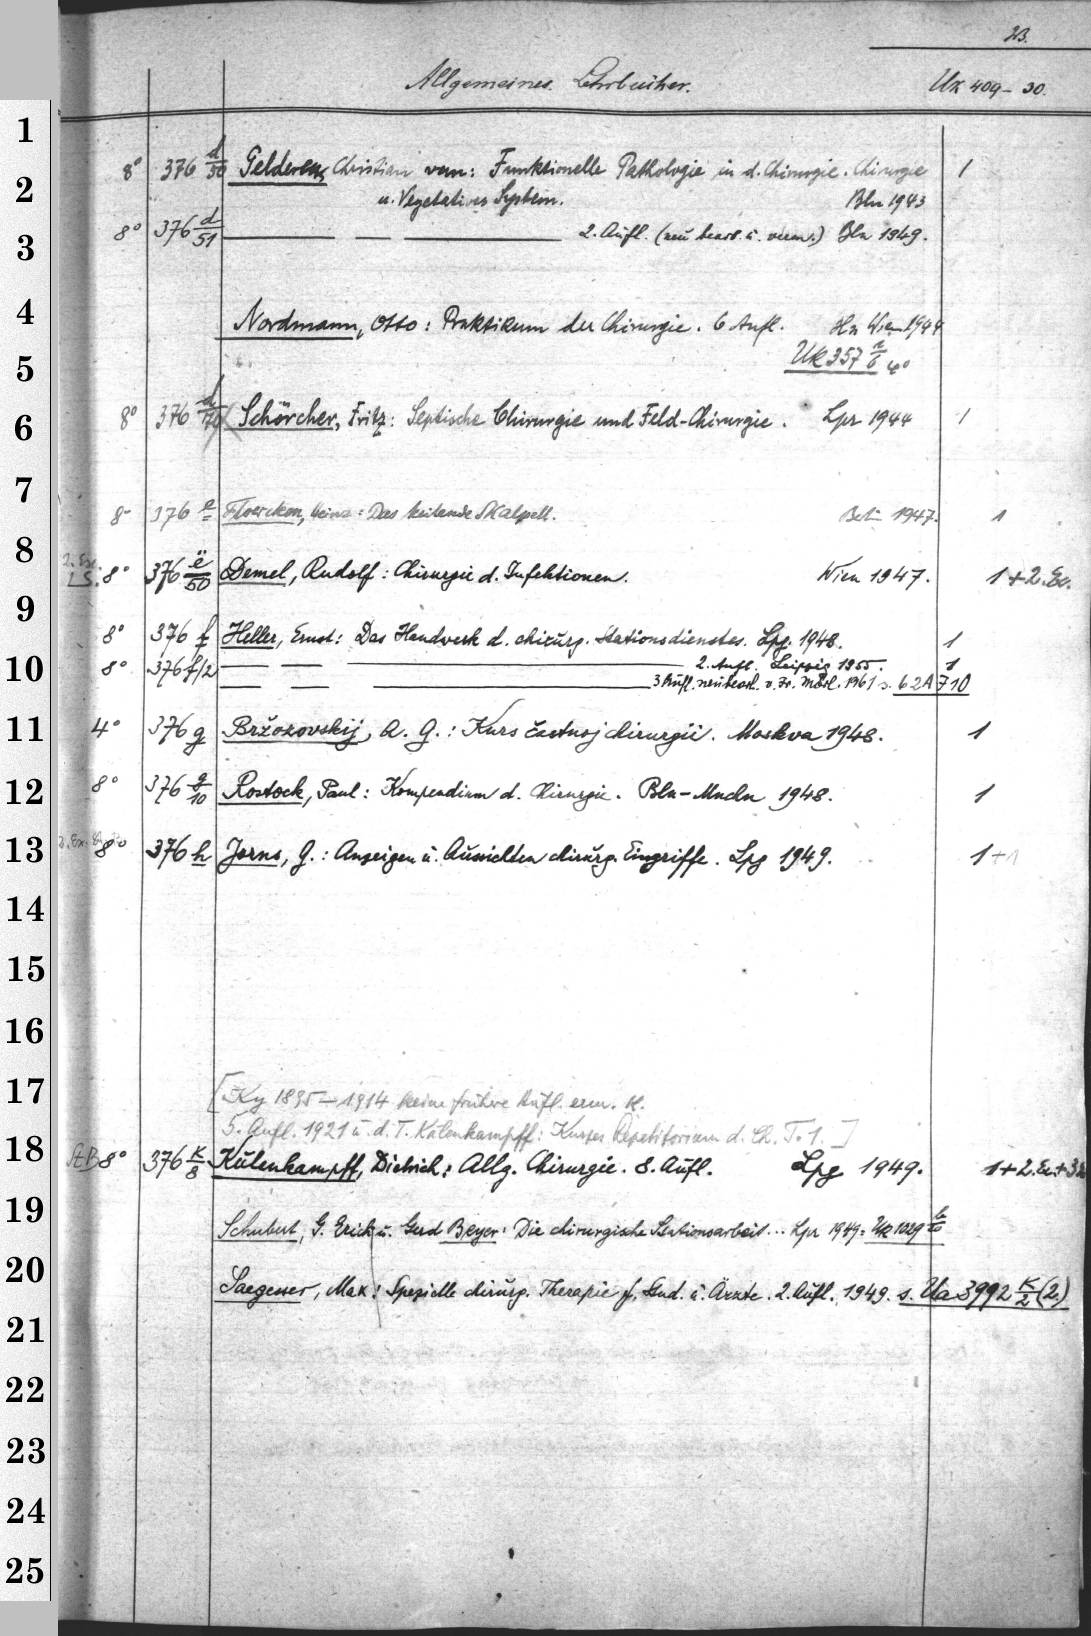 23.
Allgemeines. Lehrbücher. Uk 409-30.
8° 376 d/50 Gelderen, Christian van: Funktionelle Pathologie in d. Chirurgie. Chirurgie 1
u. Vegetatives System. Bln 1943
8° 376 d/51 2. Aufl. (neu bearb. u. verm.) Bln 1949.
Nordmann, Otto: Praktikum der Chirurgie. 6 Aufl. Wien 1944
Uk 357 n/6 4°
8° 376 d/170 Schörcher, Fritz: Septische Chirurgie und Feld-Chirurgie. Lpz 1944 1
8° 376 e Floercken, Heinz: Das heilende Skalpell. 1947. 1
2. Ex.
LS. 8° 376 ë/50 Demel, Rudolf: Chirurgie d. Infektionen. Wien 1947. 1+2.Ex.
8° 376 f Heller, Ernst: Das Handwerk d. chirurg. Stationsdienstes. Lpg. 1948. 1
8° 376 f/2 2. Aufl. Leipzig 1955. 1
3 Aufl. neubearb. v. Fr. Mörl. 1961 s. 62 A 710
4° 376 g Bržozovskij, A. G.: Kurs častnoj chirurgii. Moskva 1948. 1
8° 376 g/10 Rostock, Paul: Kompendium d. Chirurgie. Bln-Mchn 1948. 1
8° 376 h Jorns, G.: Anzeigen u. Aussichten chirurg. Eingriffe. Lpg 1949. 1+1
[Ky 1895-1914 keine frühere Aufl. erm. K.
5. Aufl. 1921 u. d. T. Kulenkampff: Kurzes Repetitorium d. Ch. T. 1.]
8° 376 K/8 Kulenkampff, Dietrich: Allg. Chirurgie. 8. Aufl. Lpg 1949. 1+2.Ex+3
Schubert, G. Erich u. Gerd Beyer: Die chirurgische Stationsarbeit... Lpz 1949 = Uk 1029 b/10
Saegesser, Max: Spezielle chirurg. Therapie f. Stud. u. Ärzte. 2. Aufl. 1949. s. Ua 3992 K/2 (2)